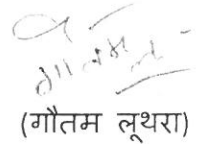 (गौतम लूथरा)